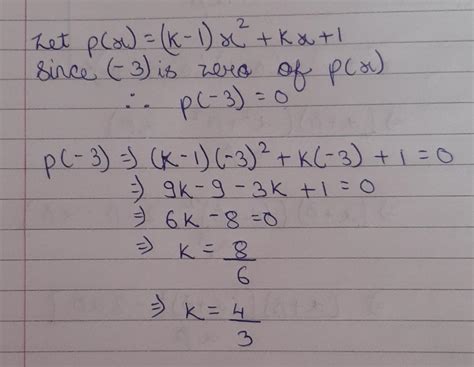 Let p(x) = (k-1) x² + kx + 1
Since (-3) is zero of p(x)
∴ p(-3) = 0
p(-3) ⇒ (k-1)(-3)² + k(-3) + 1 = 0
⇒ 9k - 9 - 3k + 1 = 0
⇒ 6k - 8 = 0
⇒ k = 8/6
⇒ k = 4/3